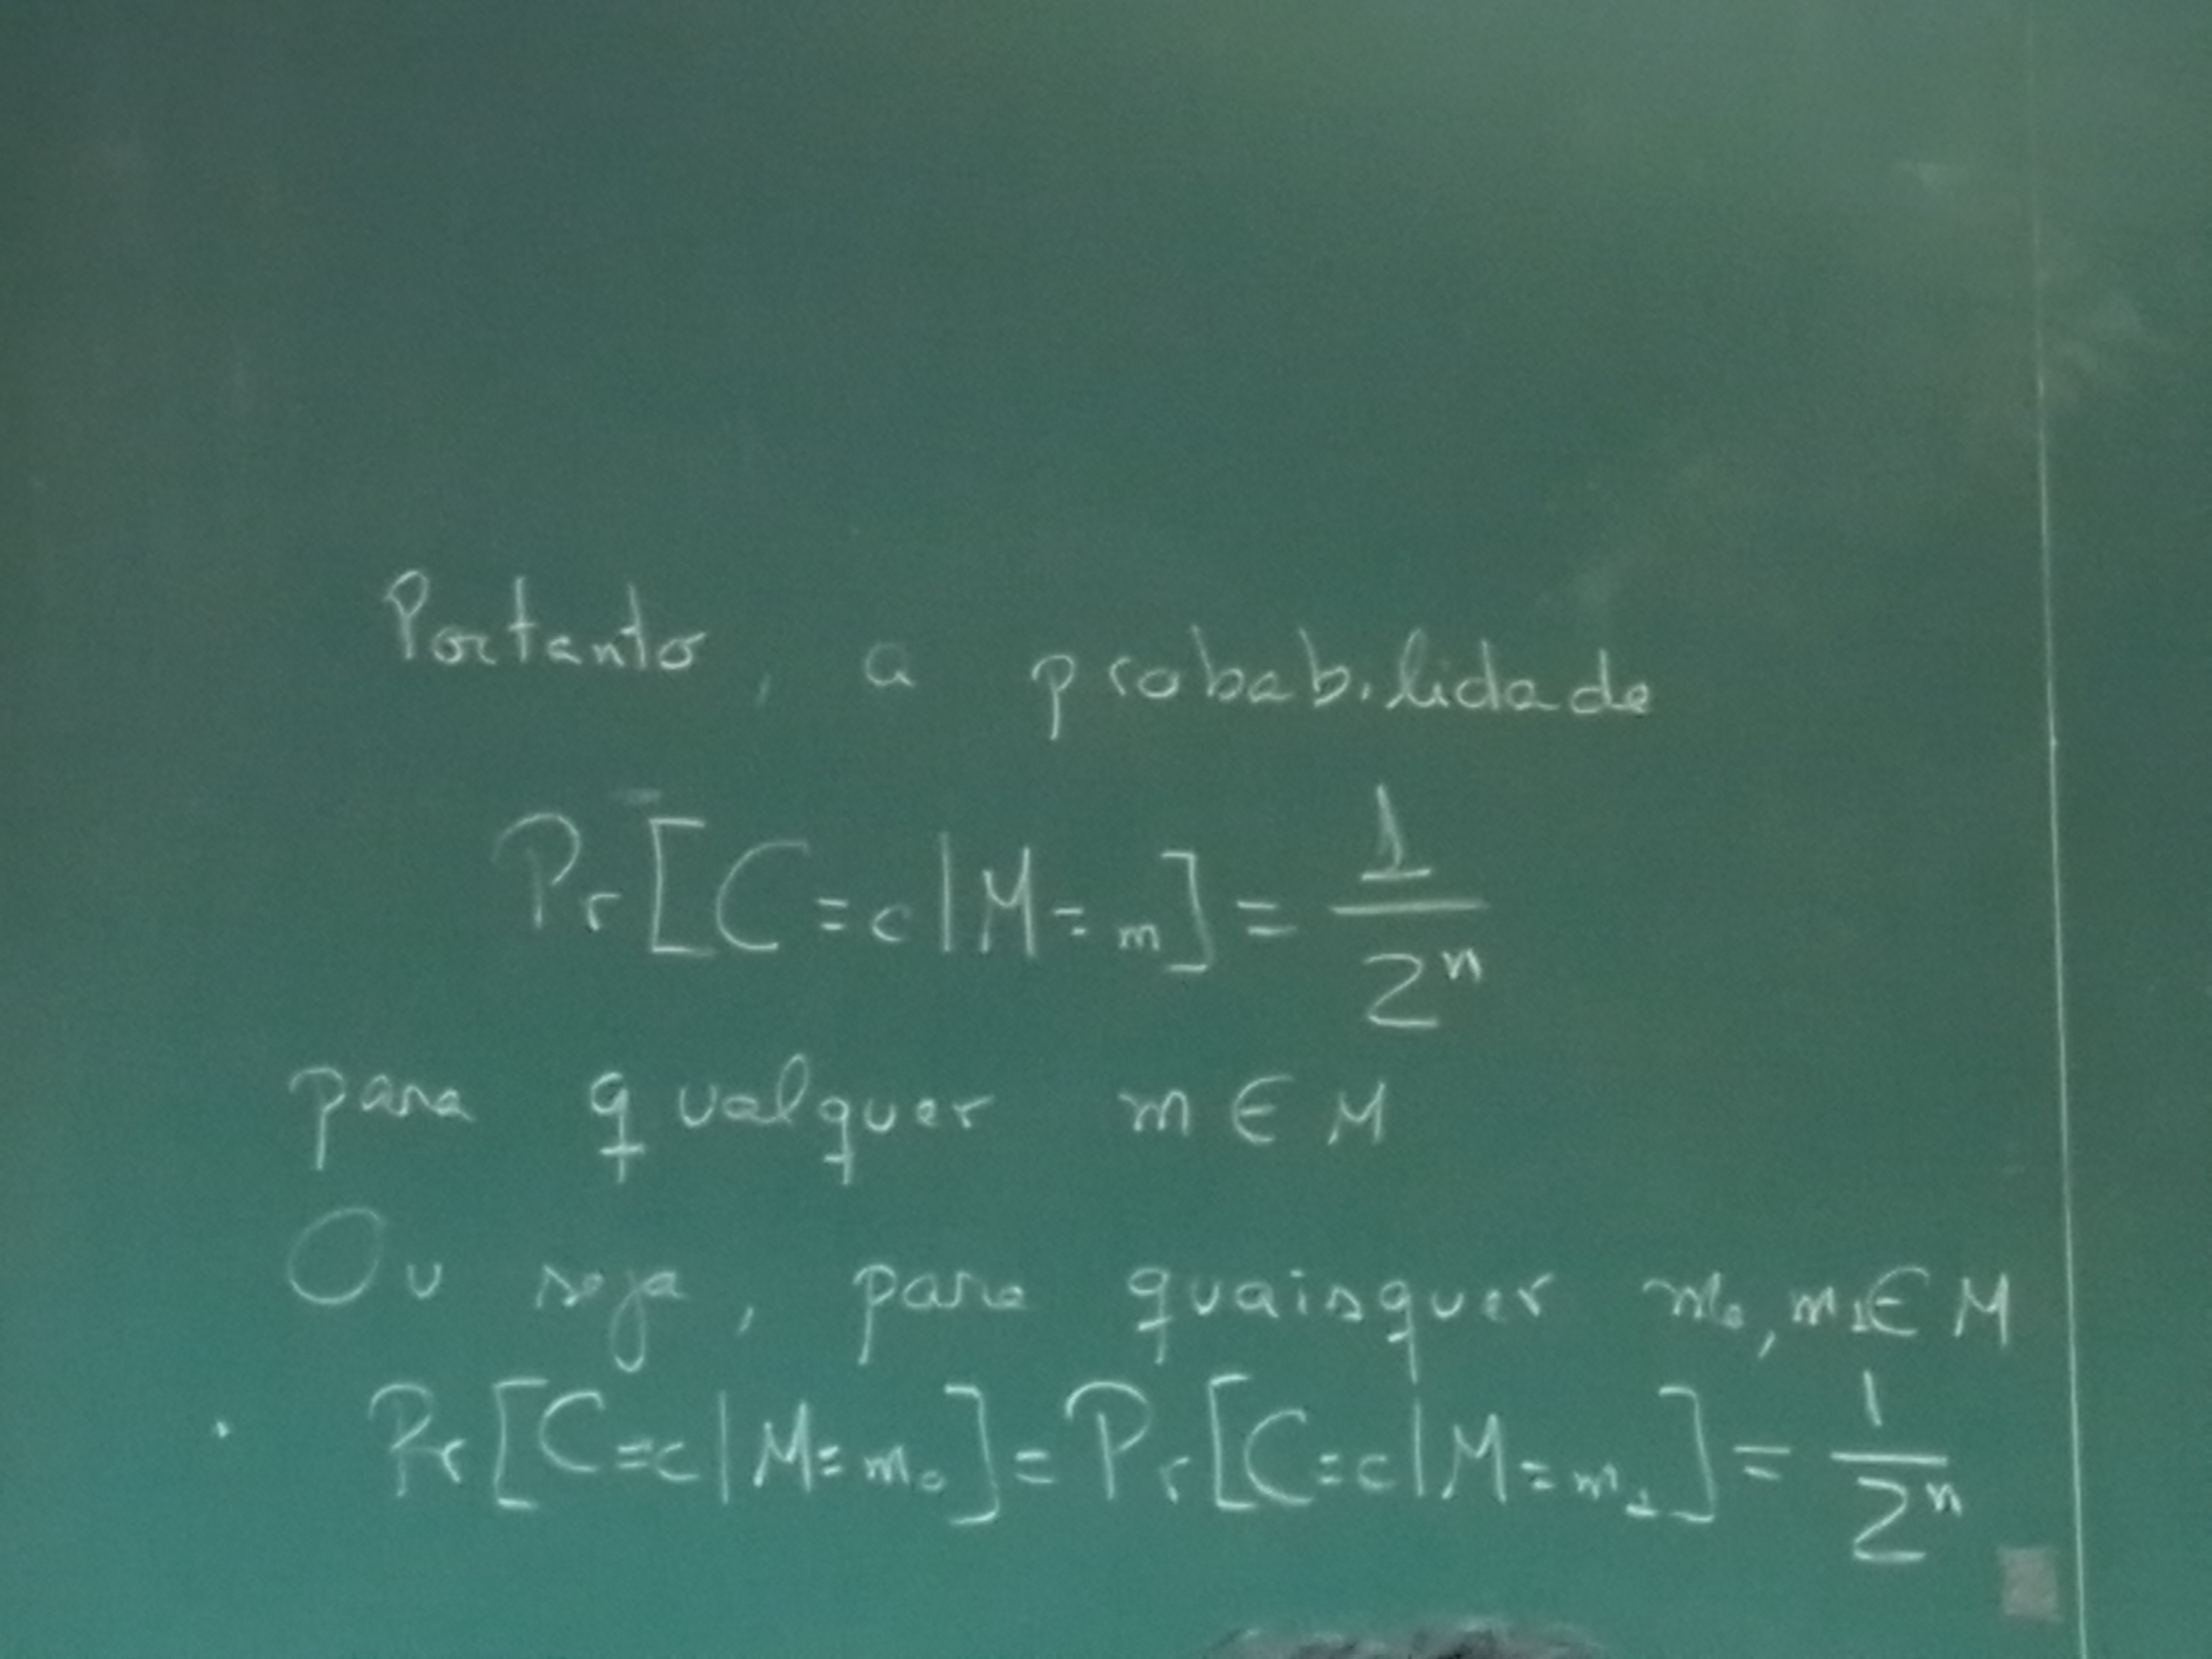 Portanto, a probabilidade
Pr[C=c|M=m] = 1/2ⁿ
para qualquer m ∈ M
Ou seja, para quaisquer m₀, m₁ ∈ M
Pr[C=c|M=m₀] = Pr[C=c|M=m₁] = 1/2ⁿ